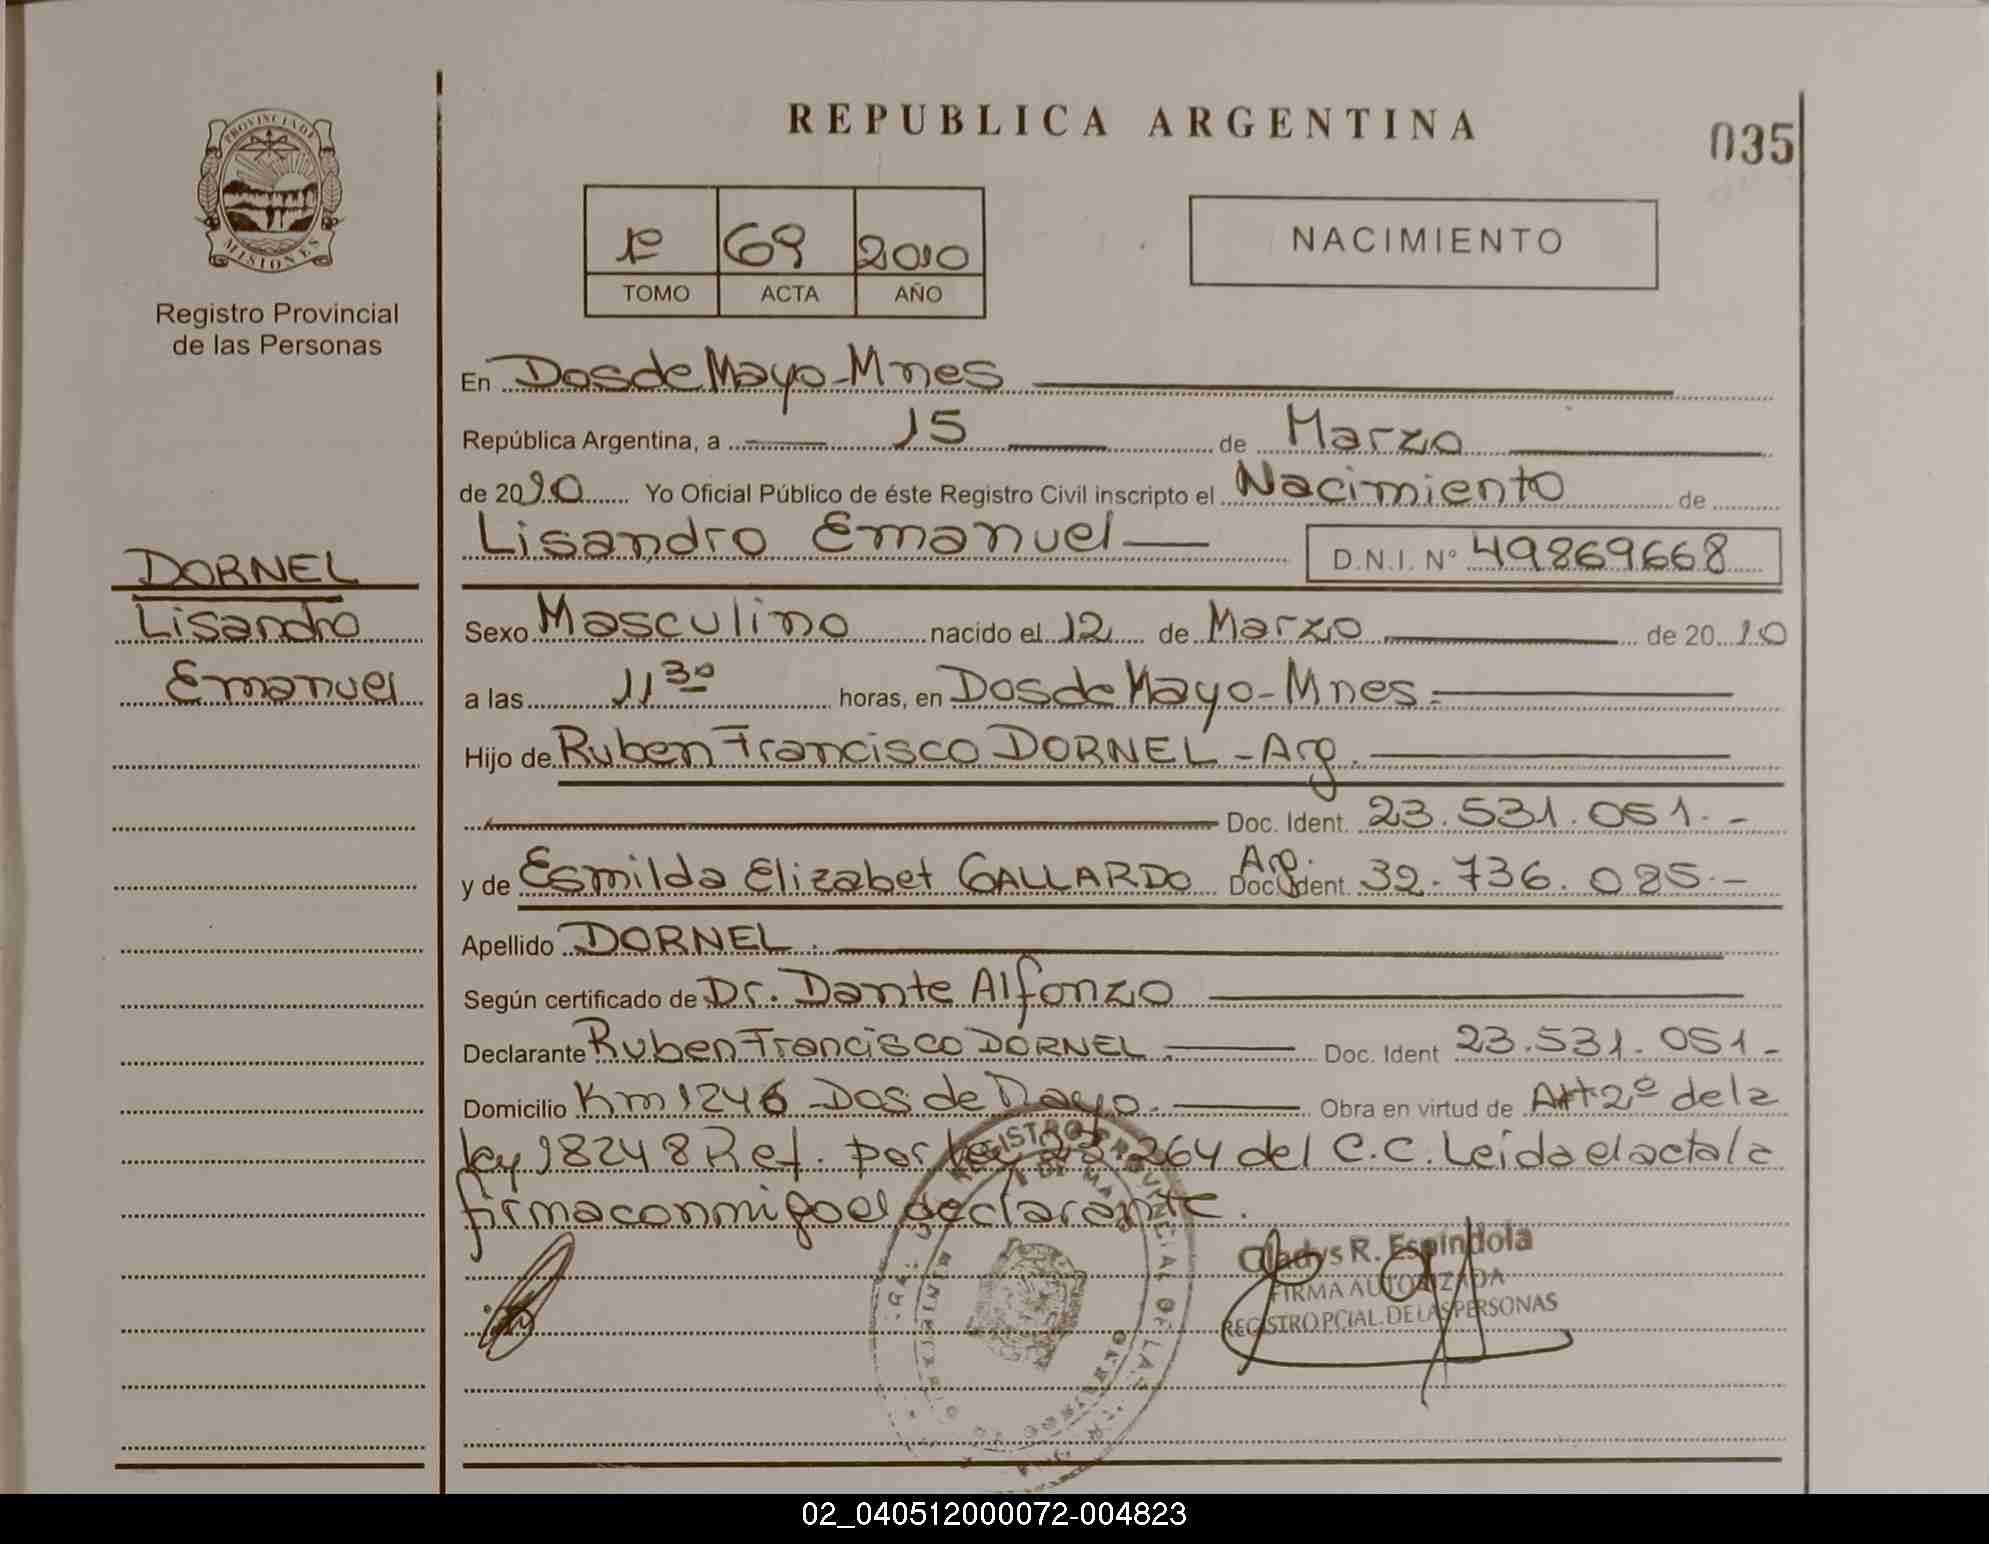 REPUBLICA ARGENTINA
035
PROVINCIA DE
MISIONES
Registro Provincial
de las Personas
1º 69 2010
TOMO ACTA AÑO
NACIMIENTO
En Dos de Mayo - Mnes
República Argentina, a 15 de Marzo
de 2010 Yo Oficial Público de éste Registro Civil inscripto el Nacimiento de
Lisandro Emanuel D.N.I. Nº 49869668
DORNEL
Lisandro
Emanuel
Sexo Masculino nacido el 12 de Marzo de 2010
a las 11 30 horas, en Dos de Mayo - Mnes.
Hijo de Ruben Francisco DORNEL - Arg.
Doc. Ident. 23.531.051.-
y de Esmilda Elizabet GALLARDO Arg. Doc. Ident. 32.736.085.-
Apellido DORNEL.
Según certificado de Dr. Dante Alfonzo
Declarante Ruben Francisco DORNEL. Doc. Ident 23.531.051-
Domicilio Km 1246 Dos de Mayo. Obra en virtud de Art 2º de la
ley 18248 Ref. por ley 23.264 del C.C. Leida el acta la
firma conmigo el declarante.
REGISTRO PROVINCIAL DE LAS
Gladys R. Espindola
FIRMA AUTORIZADA
REGISTRO PCIAL. DE LAS PERSONAS
02_040512000072-004823